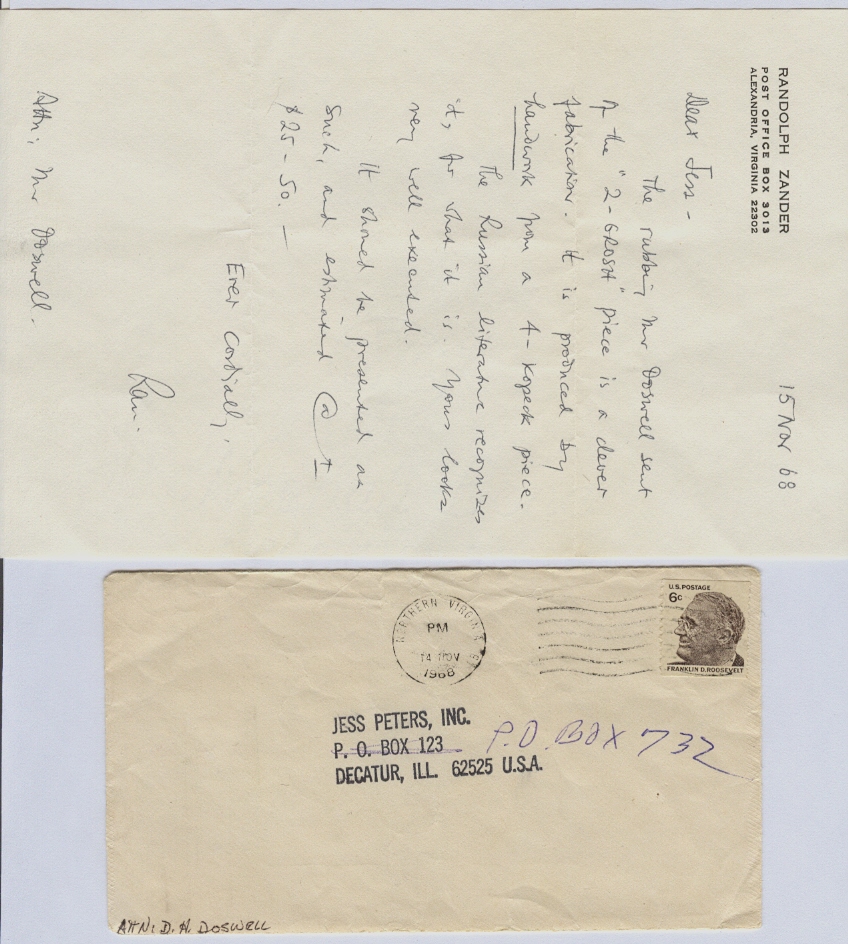 RANDOLPH ZANDER
POST OFFICE BOX 3013
ALEXANDRIA, VIRGINIA 22302
15 Nov 68
Dear Jess -
The rubbing Mr Doswell sent
of the "2-GROSH" piece is a clever
fabrication. It is produced by
handwork from a 4-kopeck piece.
The Russian literature recognizes
it, for what it is. Yours looks
very well executed.
It should be presented as
such, and estimated @ ±
$25-50.—
Ever cordially,
Ran.
Attn: Mr Doswell.
NORTHERN VIRGINIA
PM
14 NOV
1968
U.S. POSTAGE
6c
FRANKLIN D. ROOSEVELT
JESS PETERS, INC.
P. O. BOX 123 P.O. BOX 732
DECATUR, ILL. 62525 U.S.A.
ATTN: D. H. DOSWELL